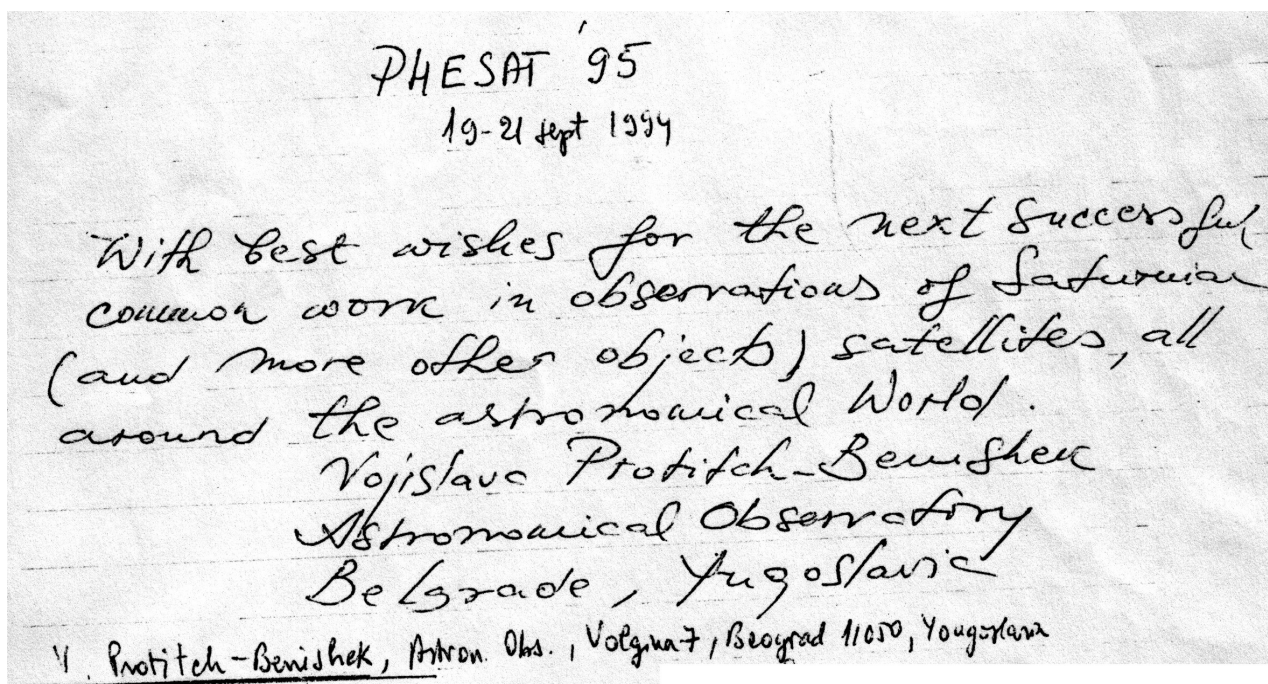 PHESAT '95
19-21 sept 1994
With best wishes for the next successful
common work in observations of Saturnian
(and more other objects) satellites, all
around the astronomical World.
Vojislava Protitch-Benishek
Astronomical Observatory
Belgrade, Yugoslavia
V. Protitch-Benishek, Astron. Obs., Volgina 7, Beograd 11050, Yougoslavia